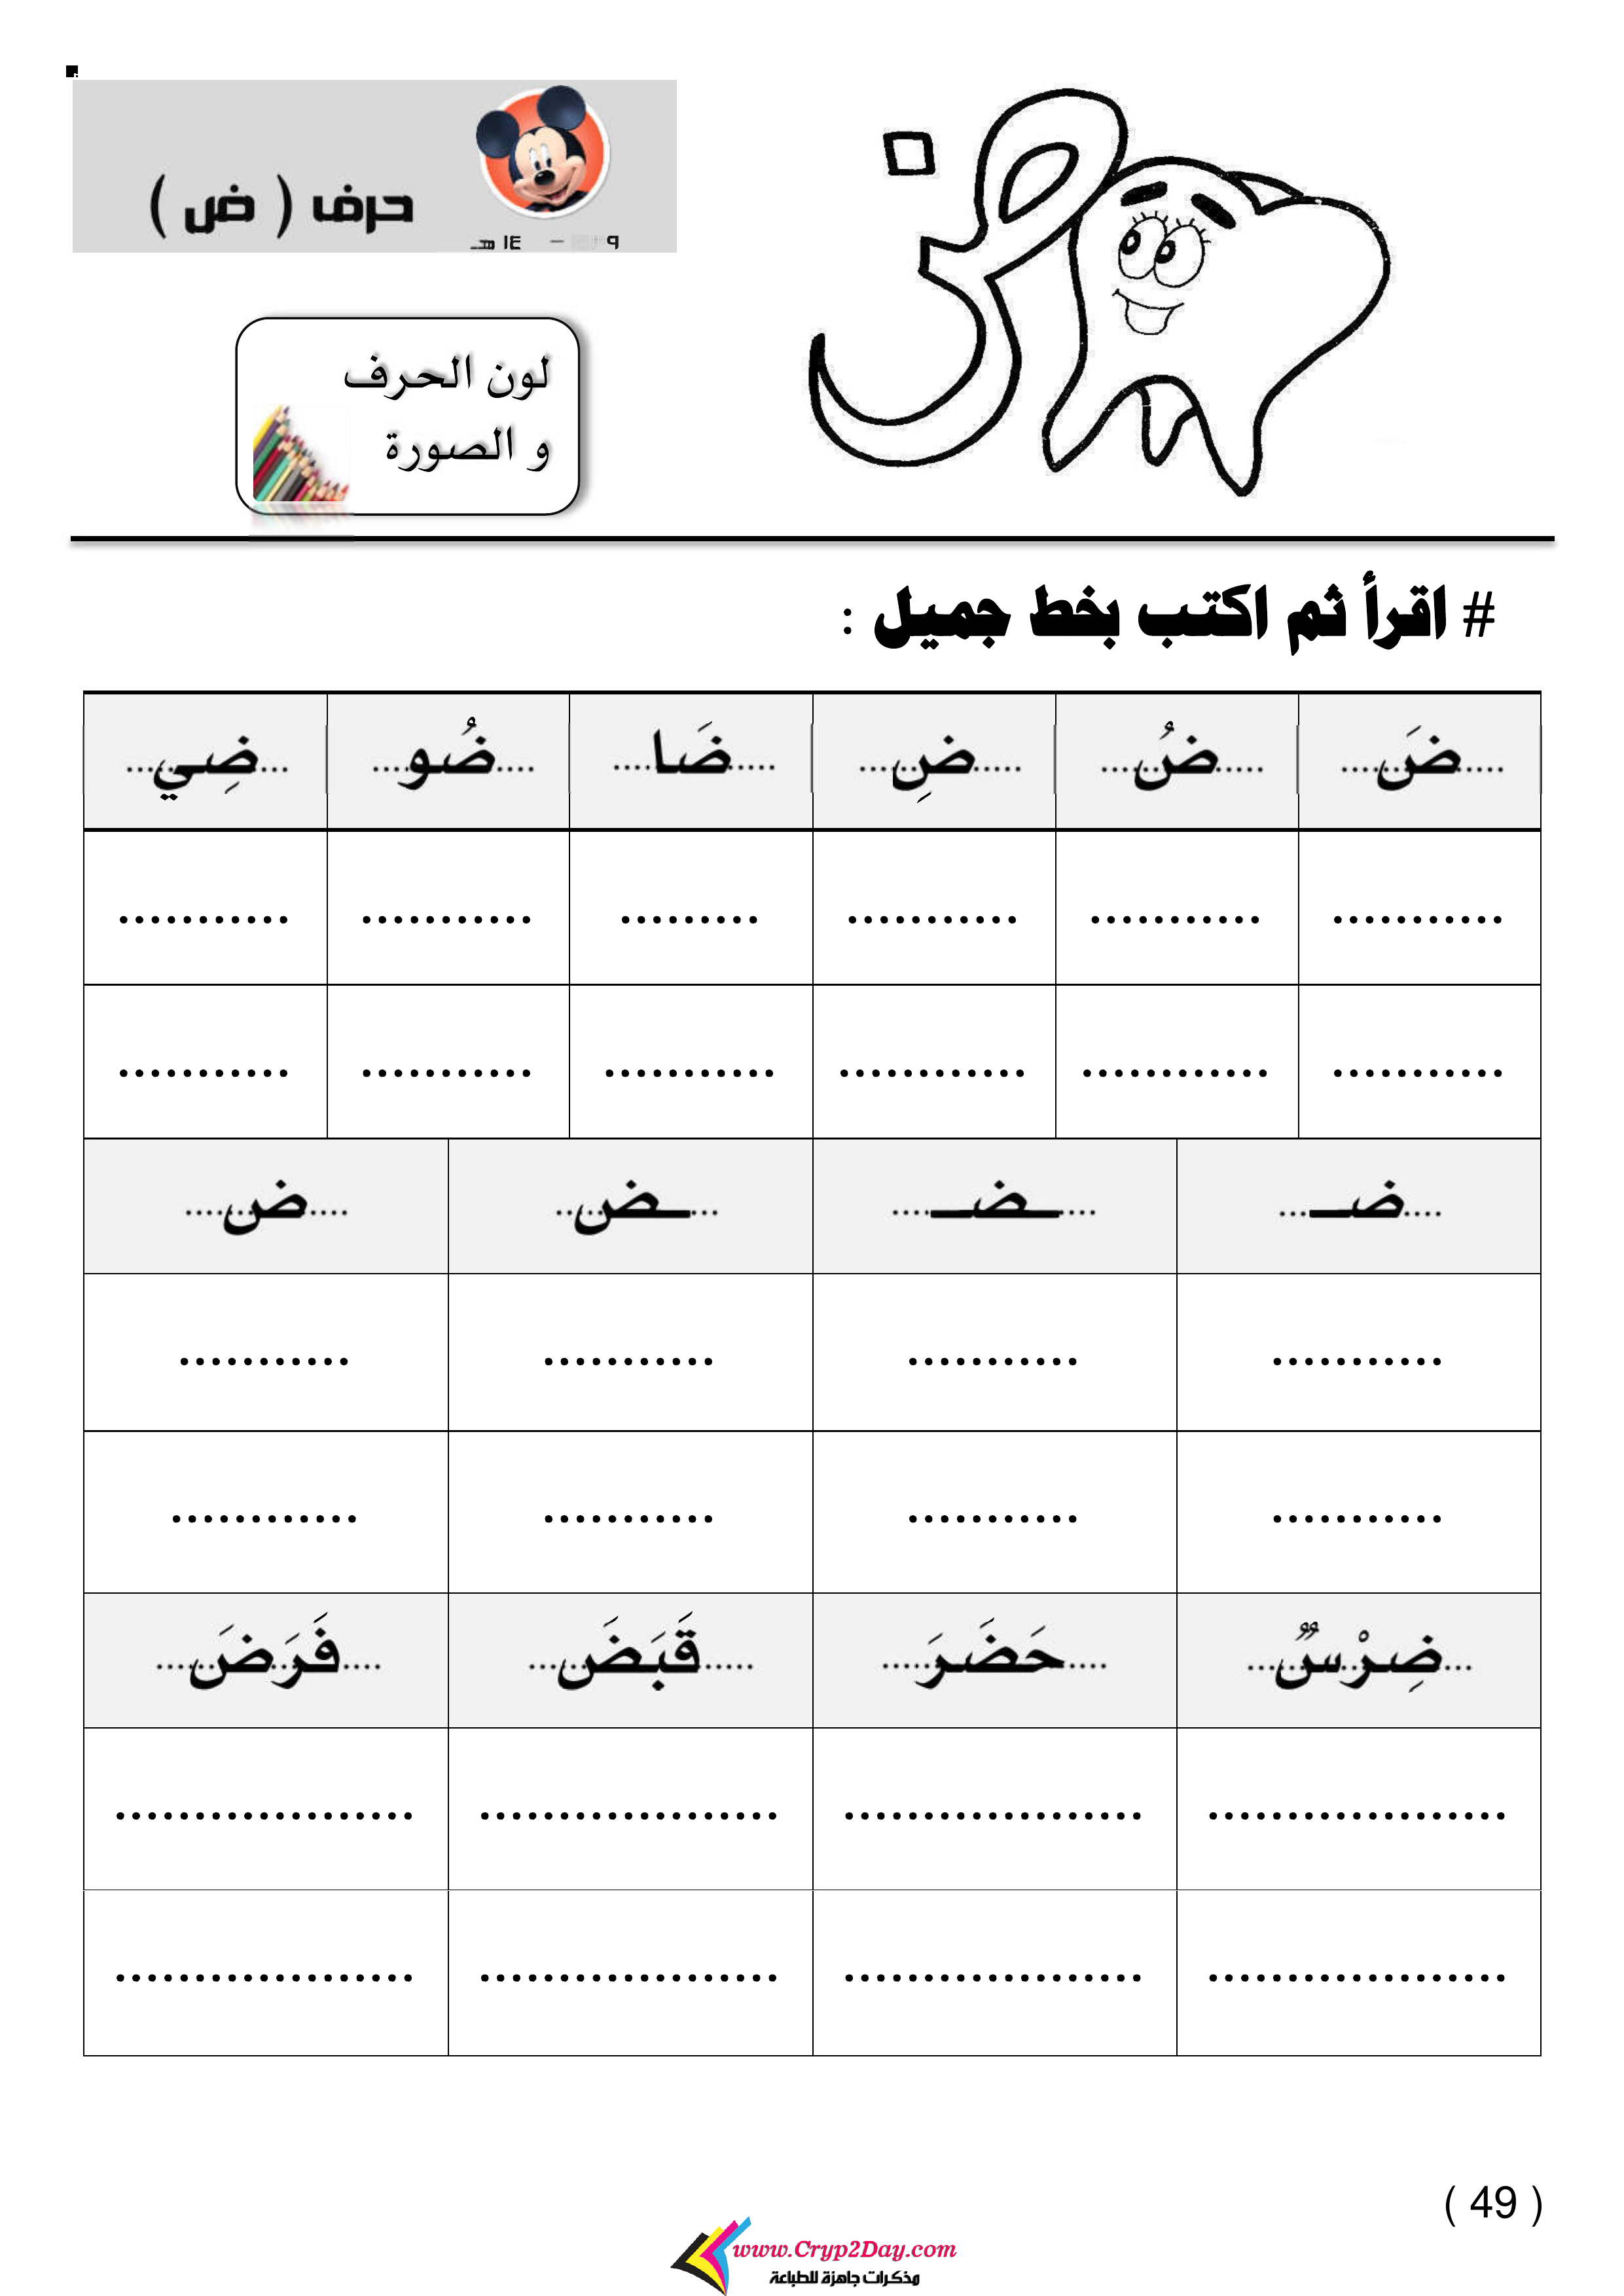 حرف ( ض )
٩ – ١٤ هـ
لون الحرف
و الصورة
ض
# اقرأ ثم اكتب بخط جميل :
.....ضَ.... .....ضُ.... .....ضِ.... ....ضَا.... ....ضُو.... ...ضِي...
........... ........... ........... ......... ........... ...........
........... ............ ............ ........... ........... ...........
....ضـ... ...ـضـ.... ...ـض... ....ض....
........... ........... ........... ...........
........... ........... ........... ............
...ضِرْسٌ... ....حَضَرَ..... .....قَبَضَ... ....فَرَضَ...
................... ................... ................... ...................
................... ................... ................... ...................
( 49 )
www.Cryp2Day.com
مذكرات جاهزة للطباعة